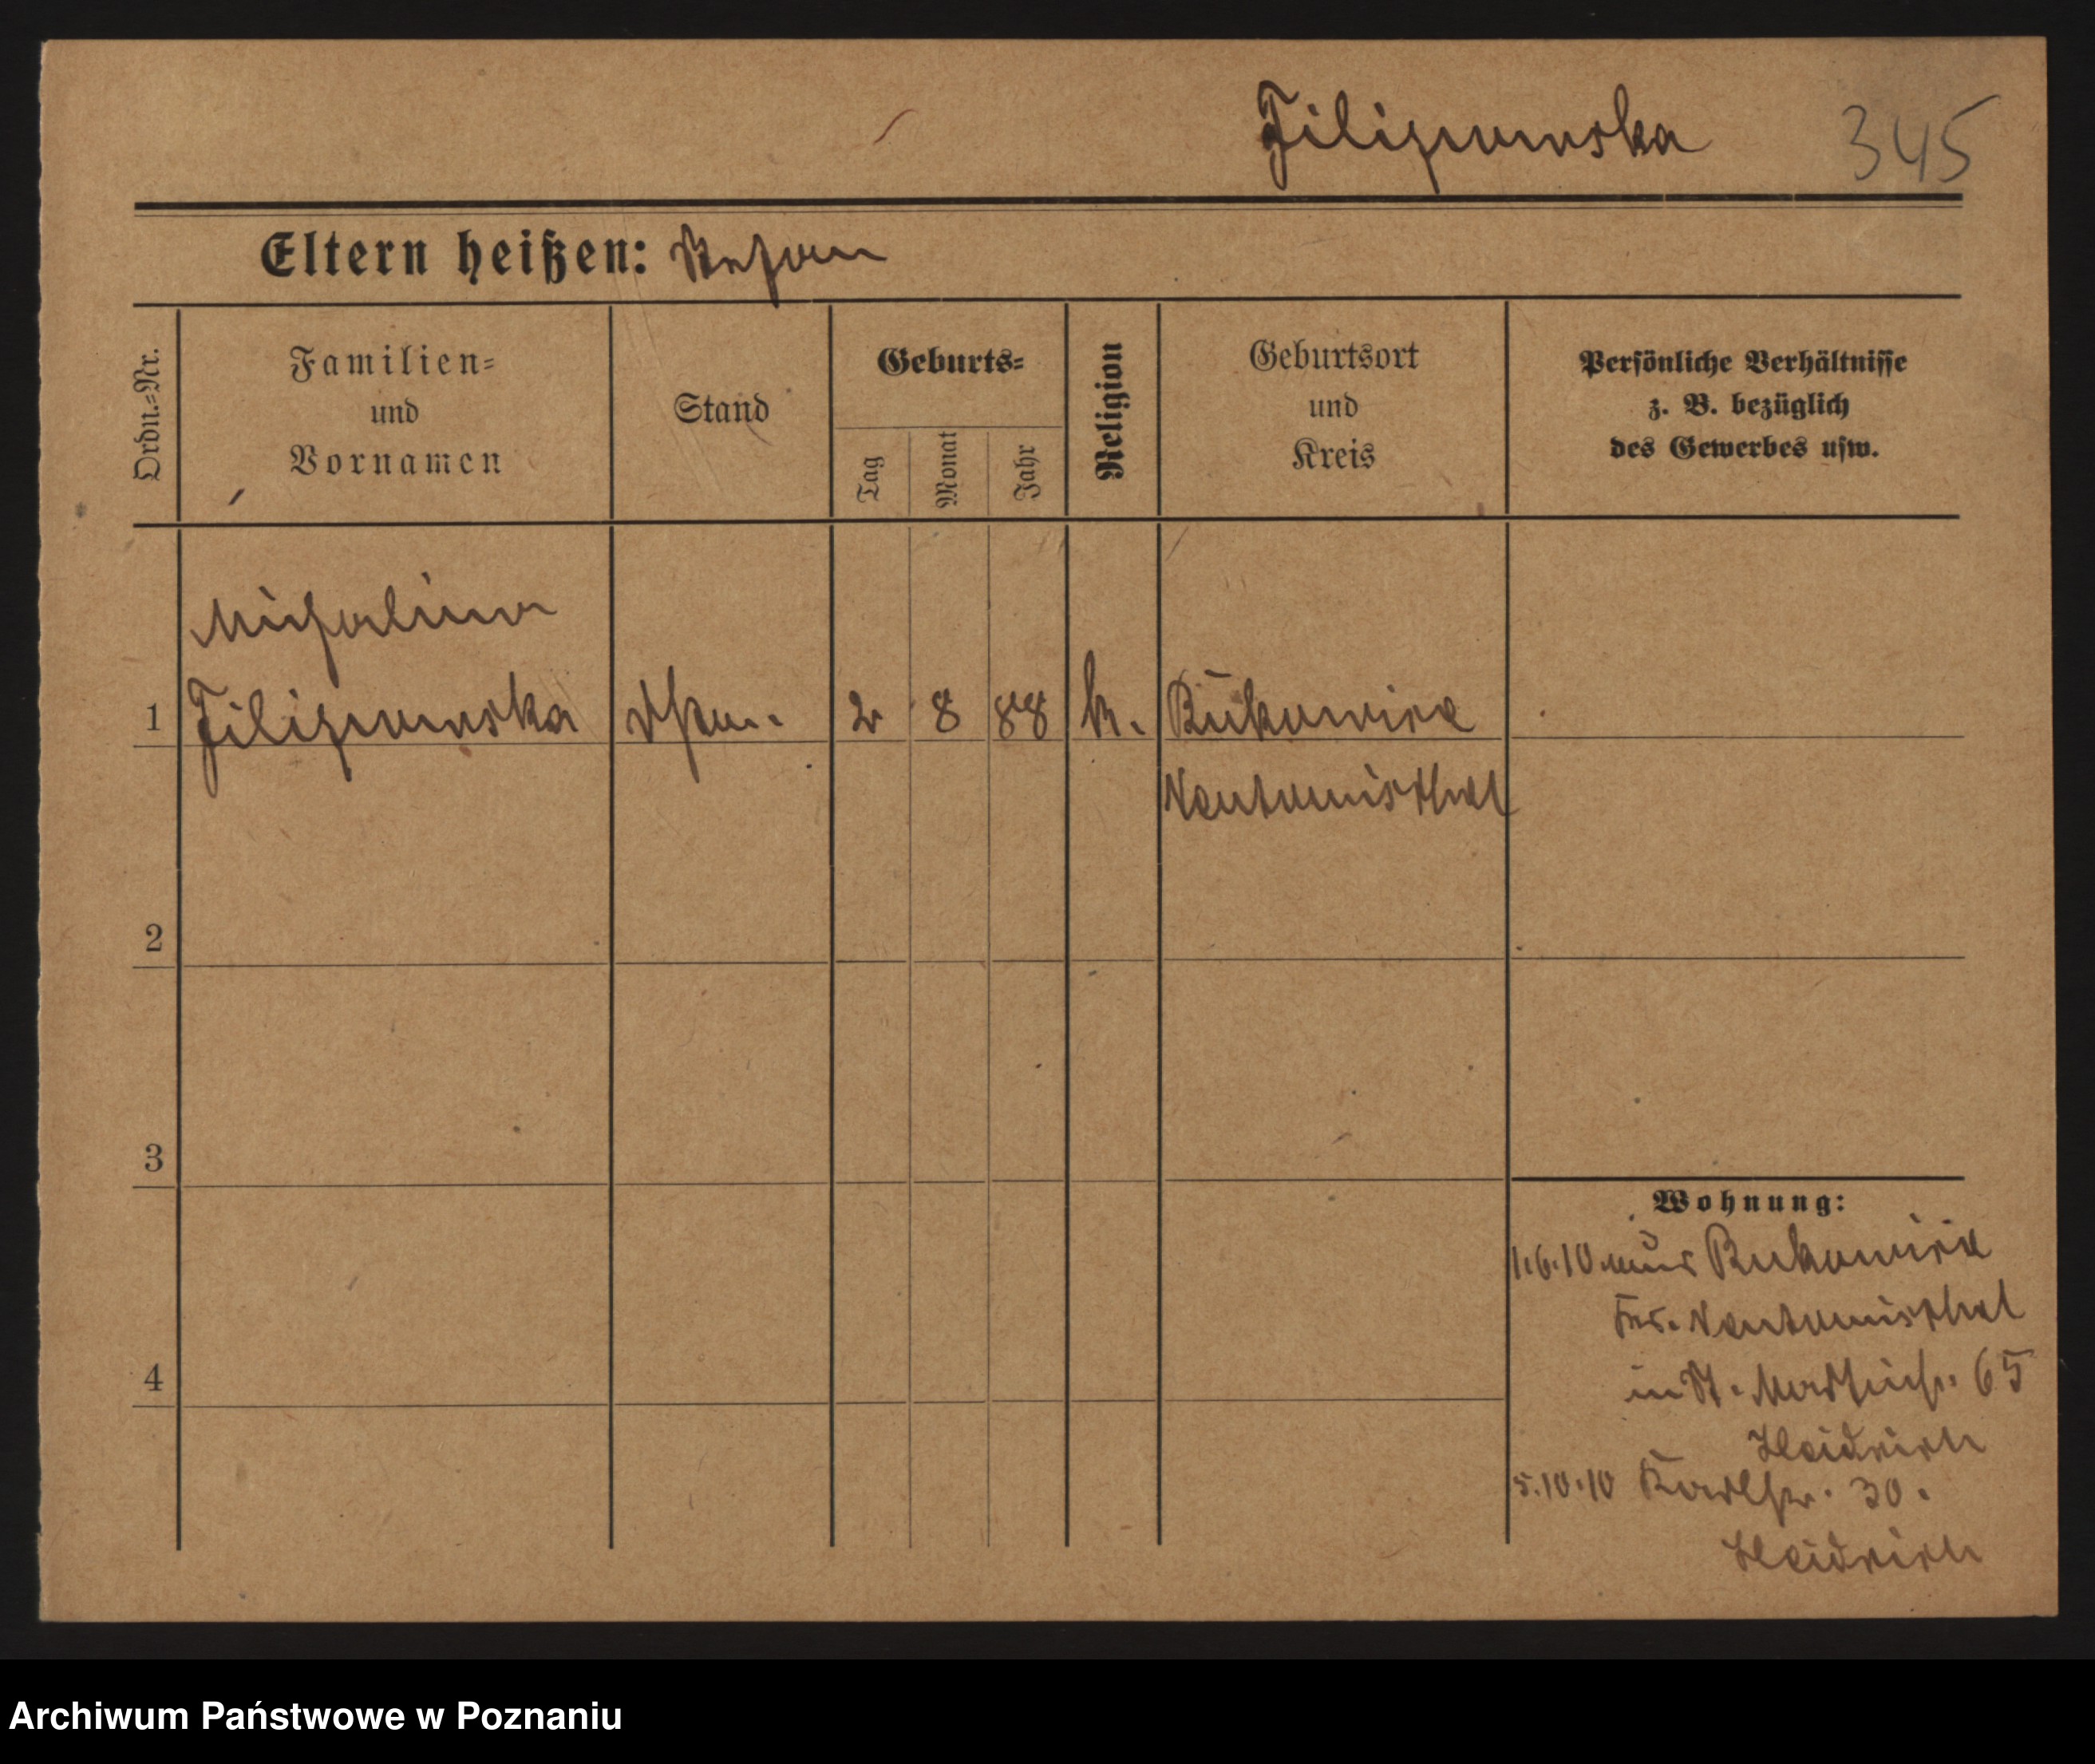 Filipowska 345
Eltern heißen: Stefan
Ordn.-Nr.
Familien-
und
Vornamen
Stand
Geburts-
Tag
Monat
Jahr
Religion
Geburtsort
und
Kreis
Persönliche Verhältnisse
z. B. bezüglich
des Gewerbes usw.
Michalina
1 Filipowska 2 8 88 k. Bukowiec
Neutomischel
2
3
4
Wohnung:
1.6.10 aus Bukowiec
Krs. Neutomischel
in St. Martinstr. 65
Heidrich
5.10.10 Karlstr. 30.
Heidrich
Archiwum Państwowe w Poznaniu